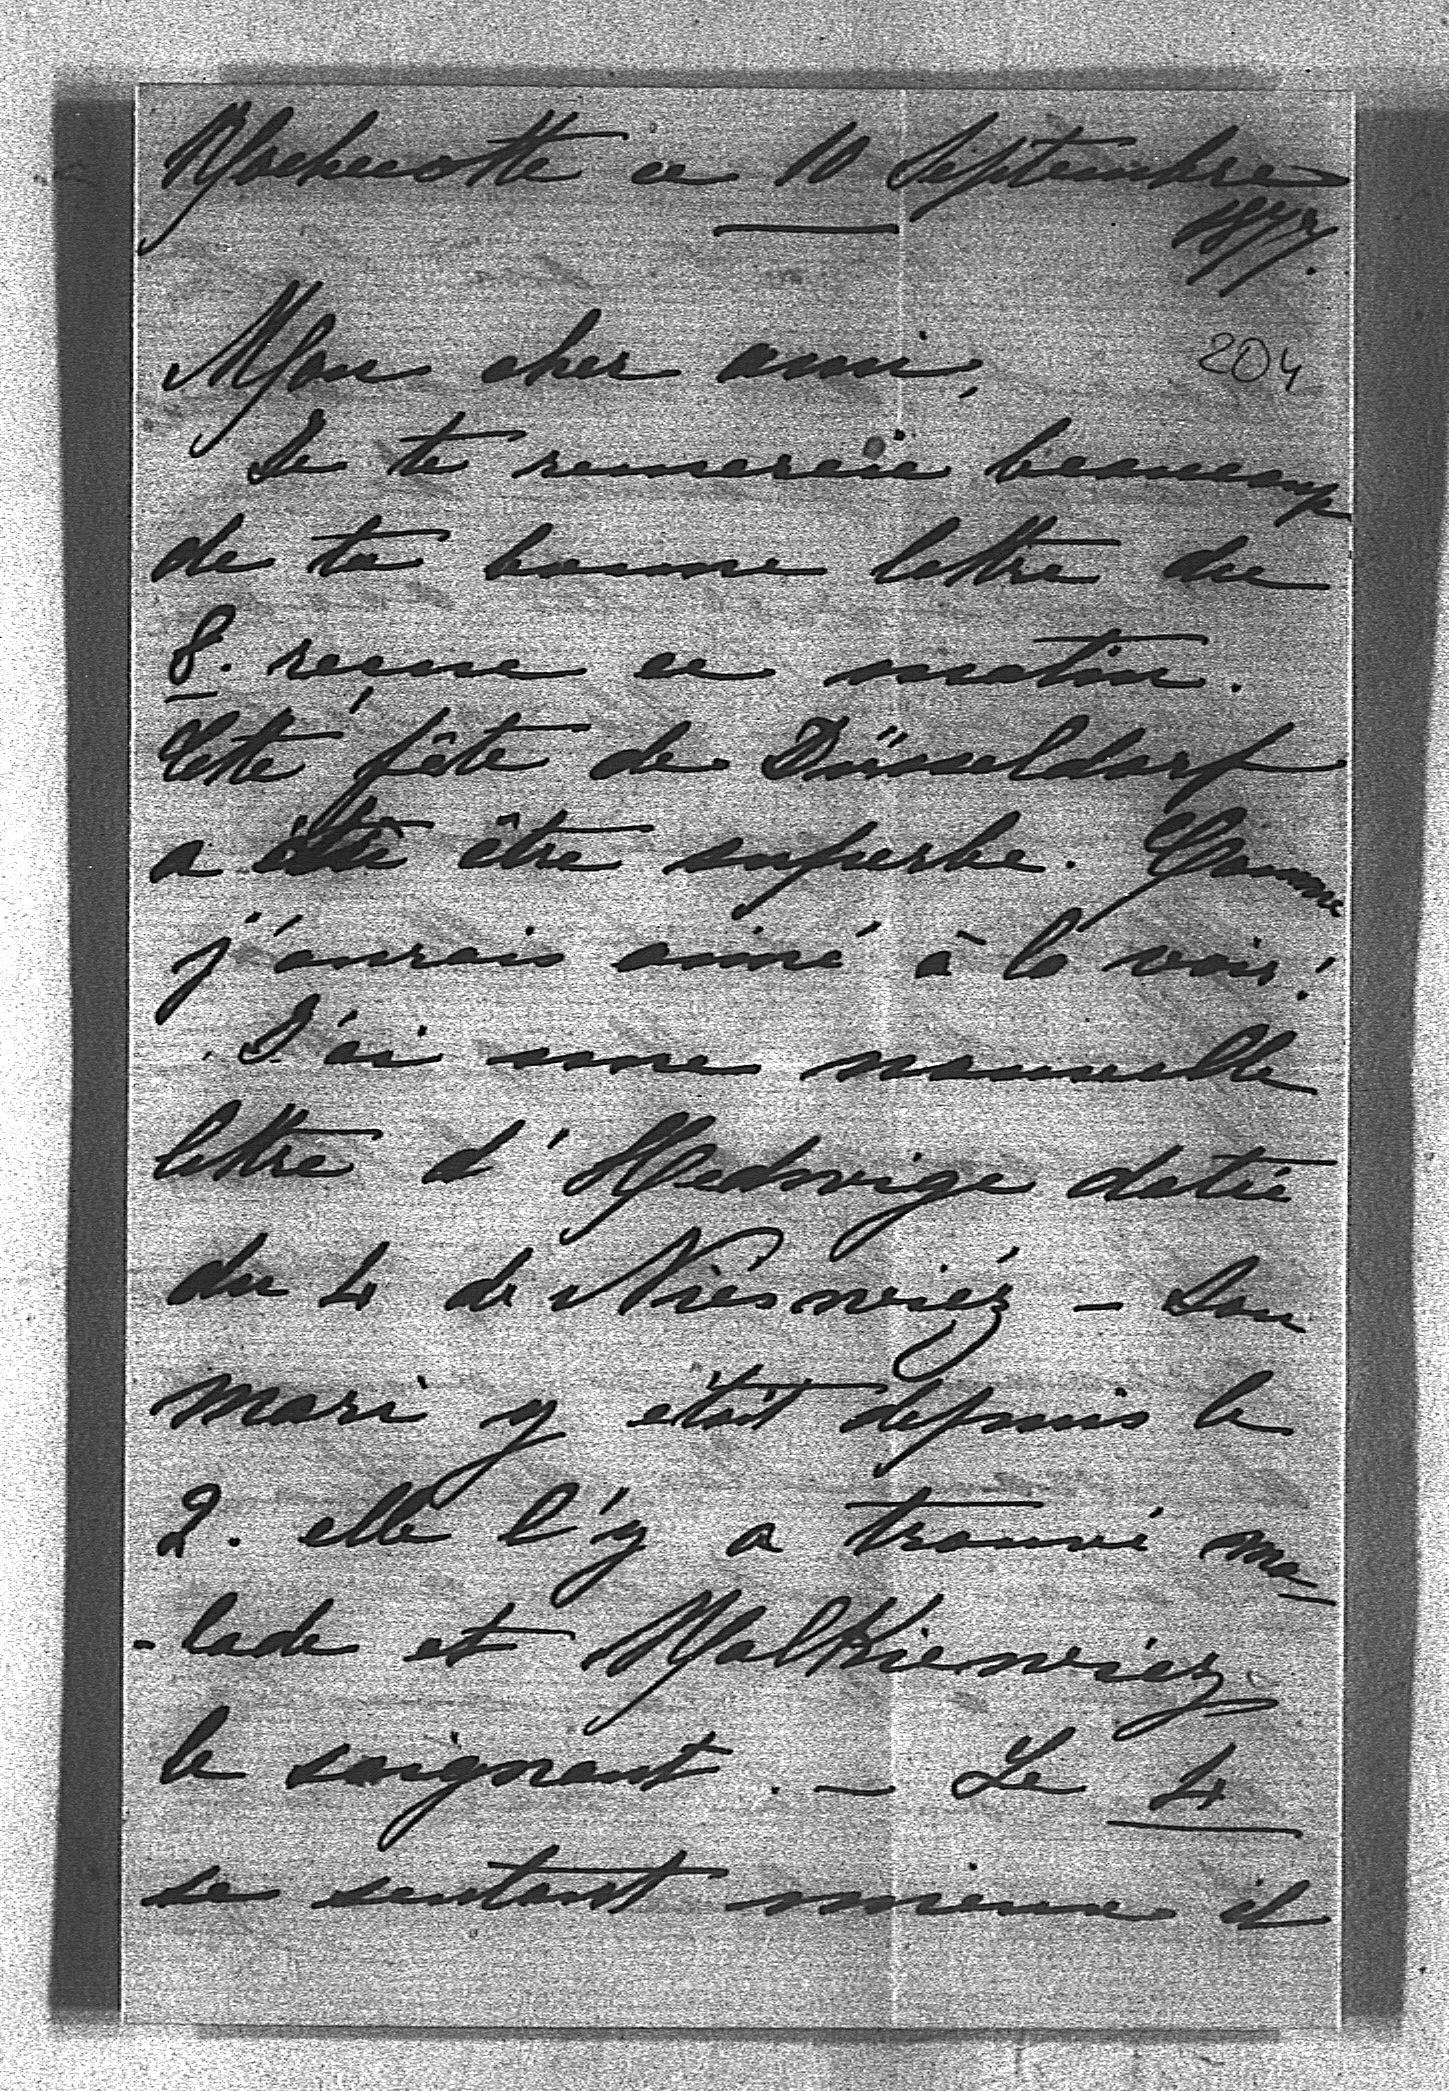 Rochecotte ce 10 Septembre
1877.
204
Mon cher ami,
Je te remercie beaucoup
de ta bonne lettre du
8. reçue ce matin.
Cette fête de Düsseldorf
a être superbe. Comme
j'aurais aimé à la voir!
J'ai une nouvelle
lettre d'Hedwige datée
du 4 de Nieswiéz – Son
mari y était depuis le
2. elle l'y a trouvé ma-
-lade et Malkiewiez
le soignant. – Le 4
se sentant mieux il